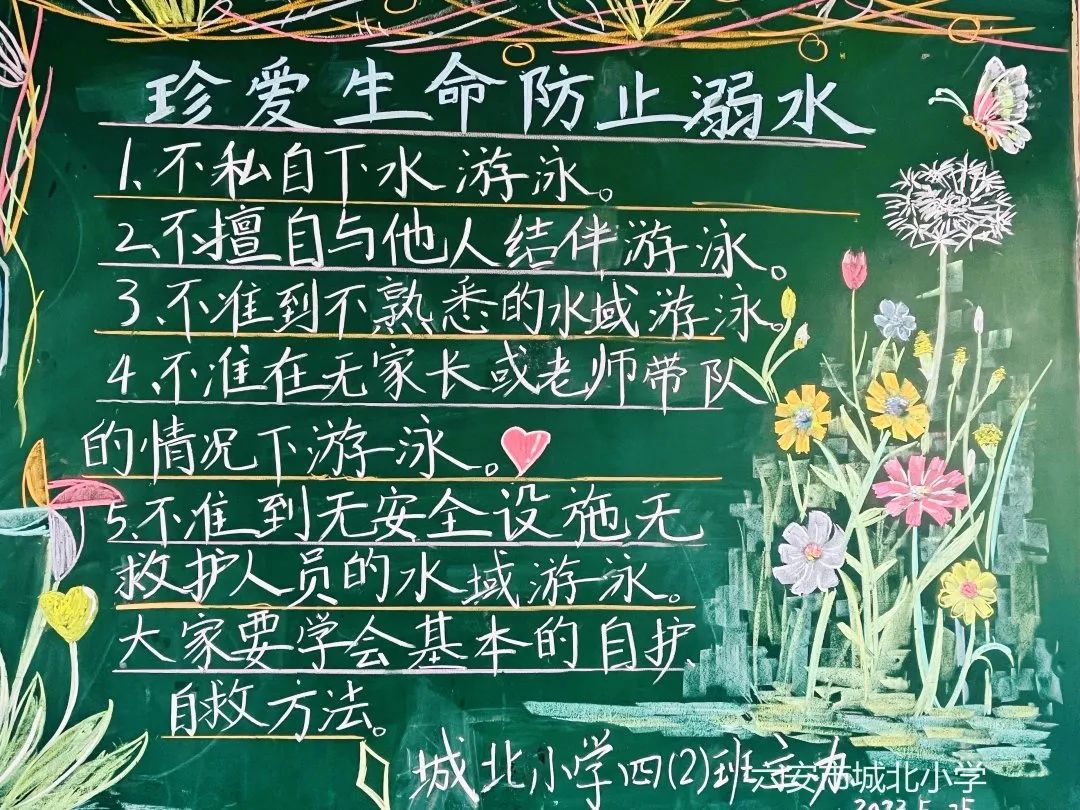 珍爱生命防止溺水
1、不私自下水游泳。
2、不擅自与他人结伴游泳。
3、不准到不熟悉的水域游泳。
4、不准在无家长或老师带队
的情况下游泳。
5、不准到无安全设施无
救护人员的水域游泳。
大家要学会基本的自护
自救方法。
城北小学四(2)班主办
六安市城北小学